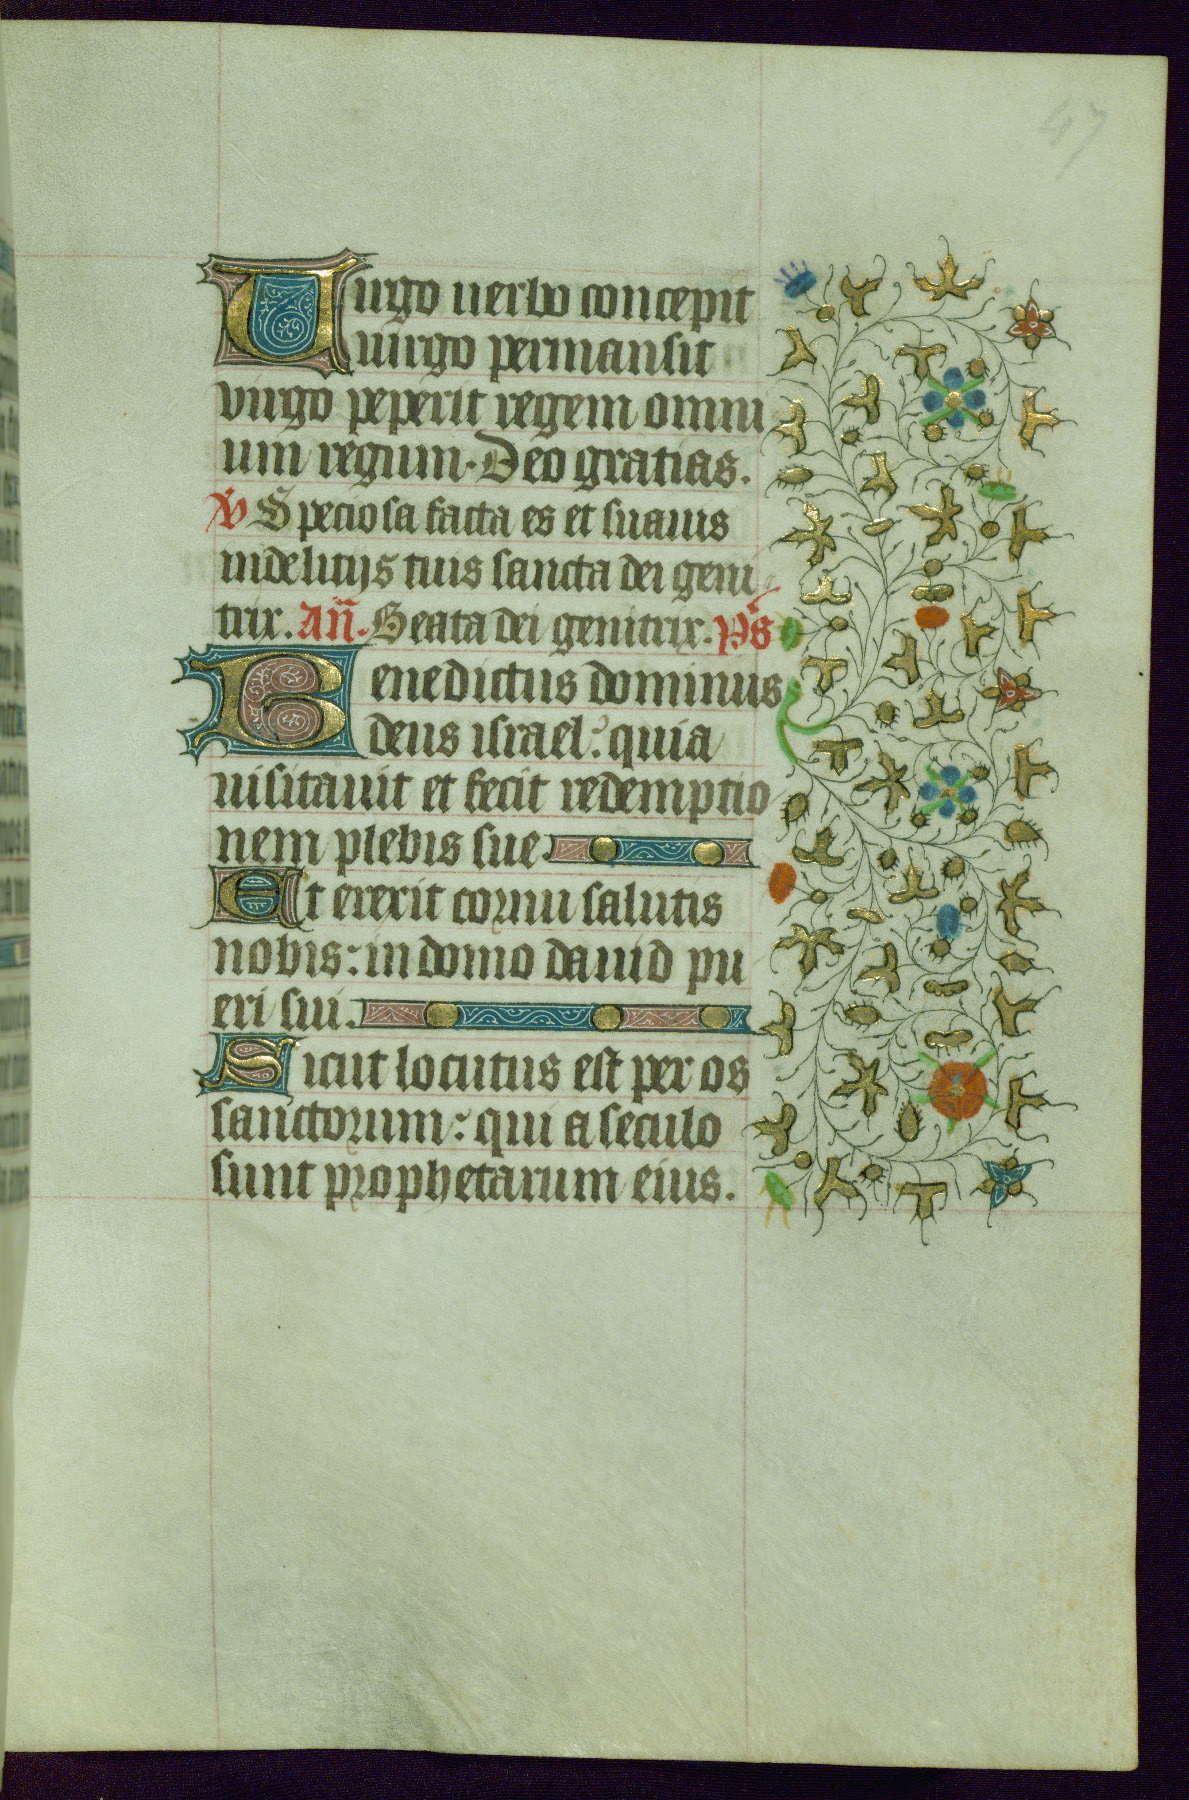 47
Uirgo uerbo concepit
uirgo permansit
virgo peperit regem omni
um regium. Deo gratias.
V̄ Speciosa facta es et suauis
indelitijs tuis sancta dei geni
trix. Añ. Beata dei genitrix. Ps̄
Benedictus dominus
deus israel: quia
uisitauit et fecit redemptio
nem plebis sue.
Et erexit cornu salutis
nobis: in domo dauid pu
eri sui.
Sicut locutus est per os
sanctorum: qui a seculo
sunt prophetarum eius.